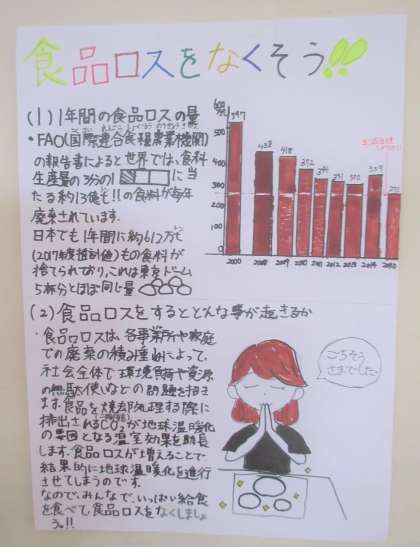 食品ロスをなくそう!!
(1)1年間の食品ロスの量
・FAO(国際連合食糧農業機関)
の報告書によると世界では、食料
生産量の3分の1に当
たる約13億t!!の食料が毎年
廃棄されています。
日本でも1年間に約612万t
(2017年度推計値)もの食料が
捨てられており、これは東京ドーム
5杯分とほぼ同じ量
600
597
500
438
418
400
372
300
200
100
0
2000
2008
2009
2010
2011
2012
2013
2014
(2)食品ロスをするとどんな事が起きるか
・食品ロスは、各事業所や家庭
での廃棄の積み重ねによって、
社会全体で環境負荷や資源
の無駄使いなどの問題を招き
ます。食品を焼却処理する際に
排出されるCO2が地球温暖化
の原因となる温室効果を助長
します。食品ロスが増えることで
結果的に地球温暖化を進行
させてしまうのです。
なので、みんなで、いっぱい給食
を食べて食品ロスをなくしましょ
う。!!
ごちそう
さまでした